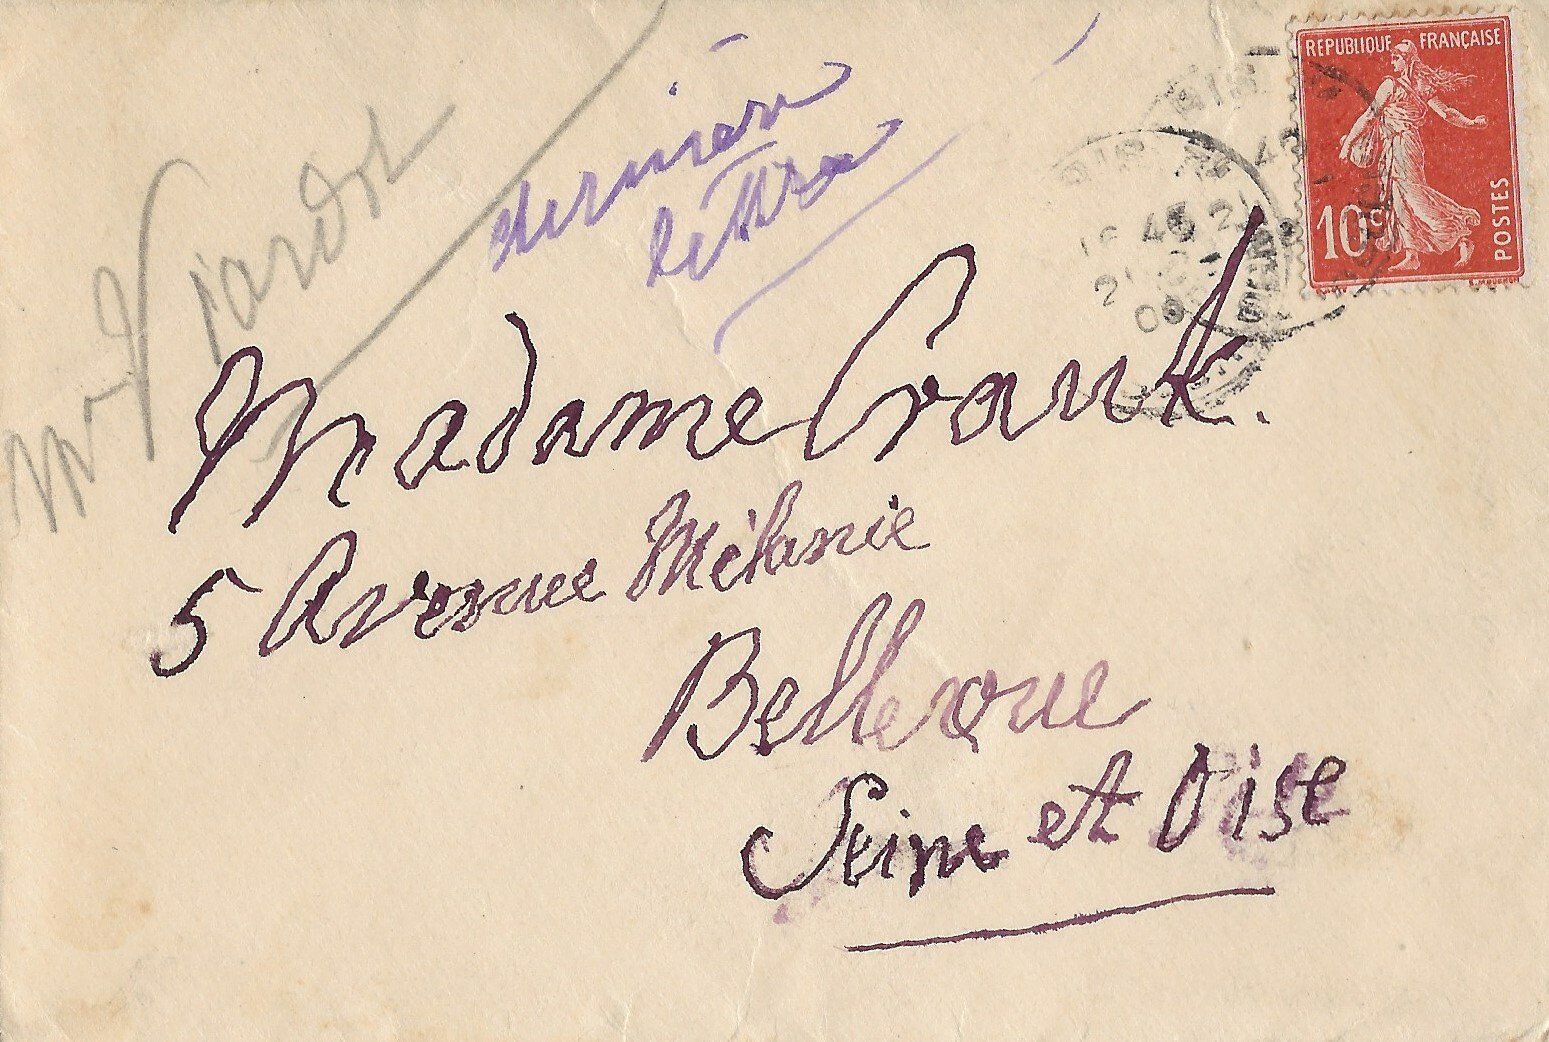 Mr Viardot
dernière
lettre
RÉPUBLIQUE FRANÇAISE
10c
POSTES
Madame Crauk.
5 Avenue Mélanie
Bellevue
Seine et Oise